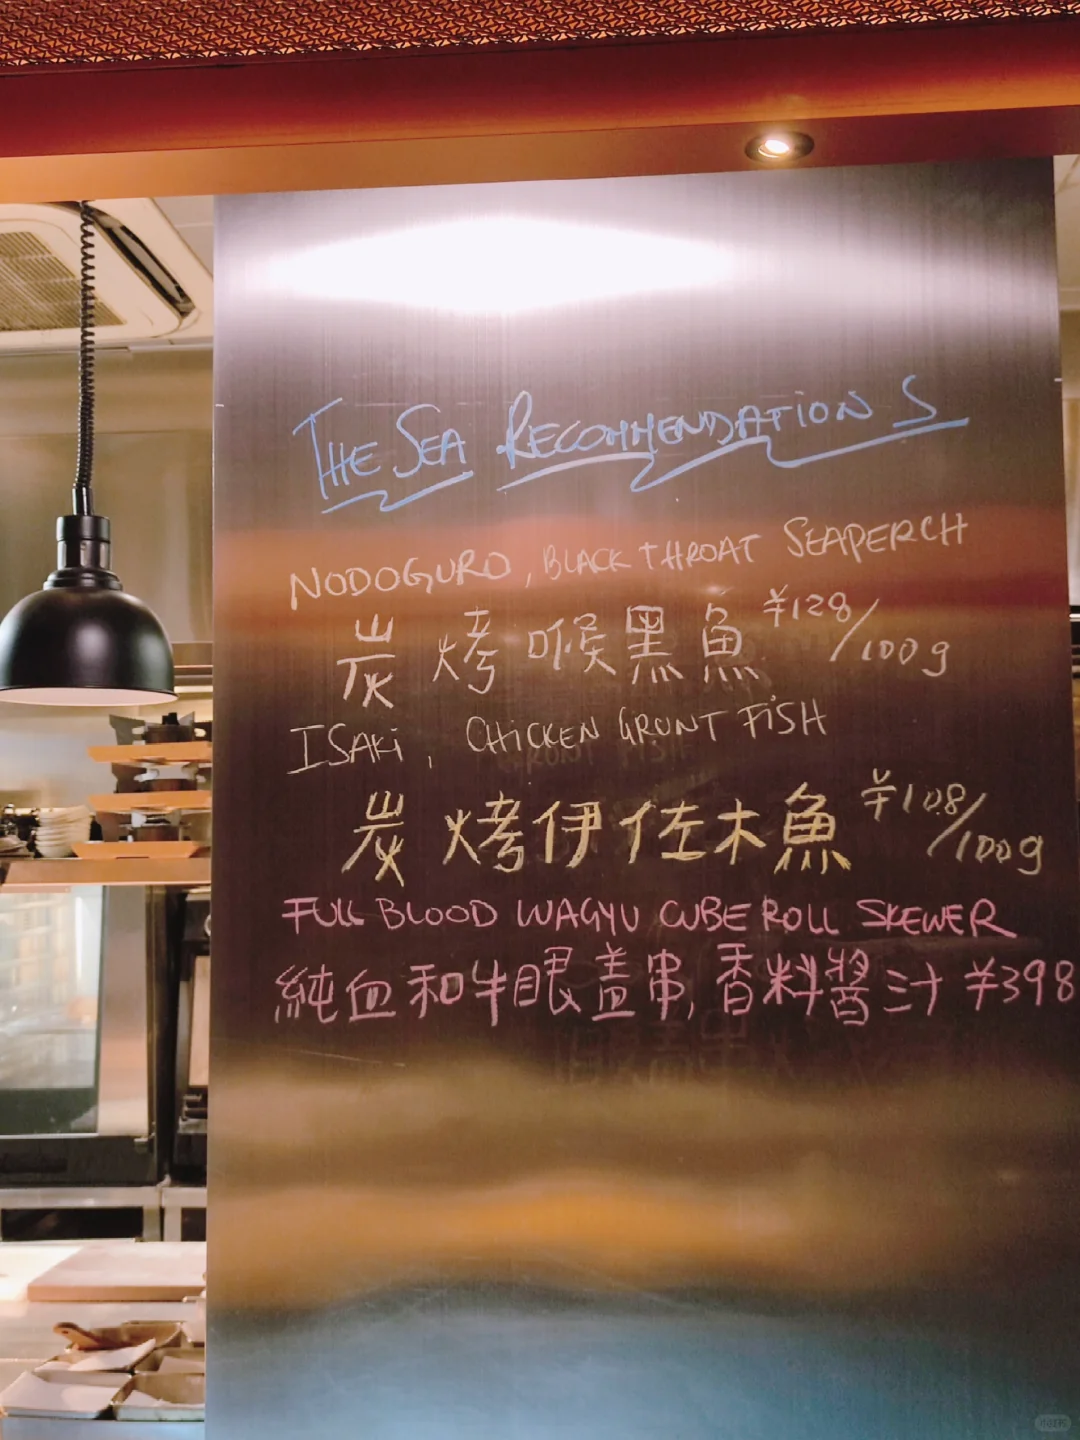 THE SEA RECOMMENDATIONS
NODOGURO, BLACK THROAT SEAPERCH
炭烤喉黑魚 ¥128/100g
ISAKi, CHiCKEN GRUNT FiSH
炭烤伊佐木魚 ¥108/100g
FULL BLOOD WAGYU CUBE ROLL SKEWER
純血和牛眼盖串,香料醬汁 ¥398